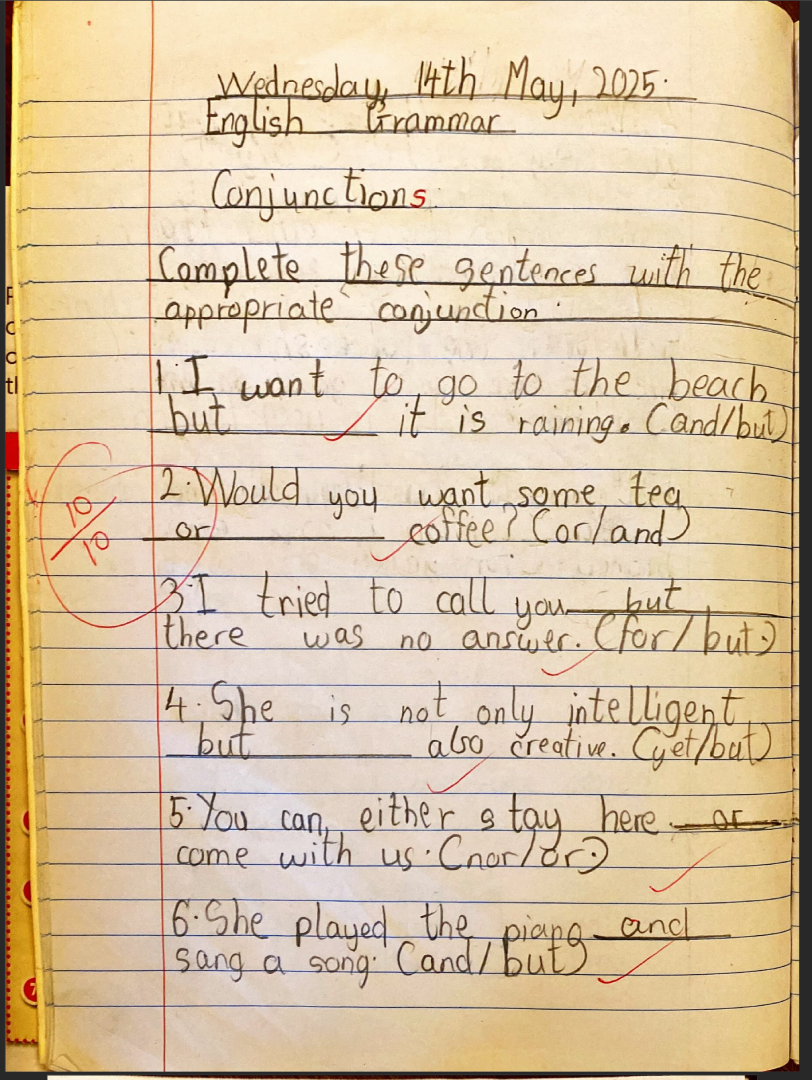 Wednesday, 14th May, 2025.
English Grammar
Conjunctions
Complete these sentences with the
appropriate conjunction.
1. I want to go to the beach
but it is raining. (and/but)
10/10
2. Would you want some tea
or coffee? (or/and)
3. I tried to call you but
there was no answer. (for/but.)
4. She is not only intelligent
but also creative. (yet/but)
5. You can either stay here or
come with us. (nor/or.)
6. She played the piano and
sang a song. (and/but)